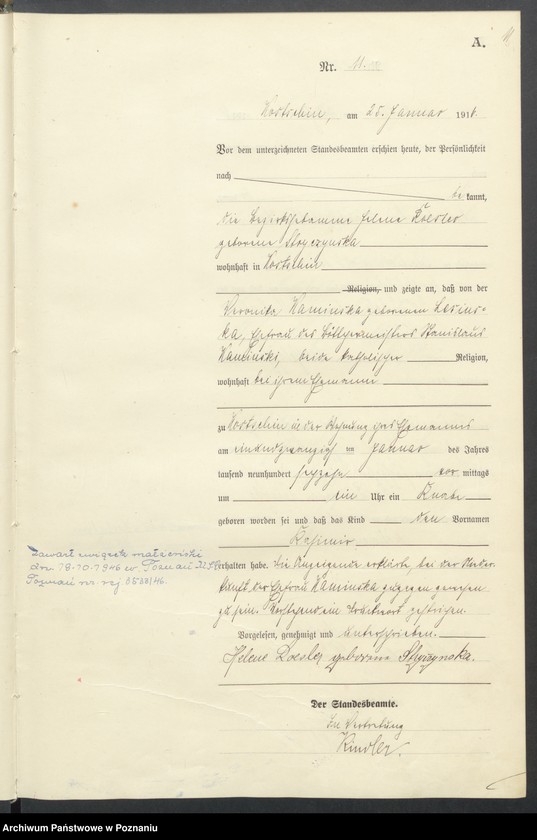 A.
11
Nr. 11.
Kostschin, am 25. Januar 191
Vor dem unterzeichneten Standesbeamten erschien heute, der Persönlichkeit
nach
be kannt,
die Bezirkshebamme Helene Roesler
geborene
wohnhaft in Kostschin
Religion, und zeigte an, daß von der
Veronika Kaminska geborenen Lesins-
ka, Ehefrau des Böttchermeisters Stanislaus
Kaminski, beide katholischer Religion,
wohnhaft bei ihrem Ehemann
zu Kostschin in der Wohnung ihres Ehemannes
am einundzwanzigsten Januar des Jahres
tausend neunhundert vor mittags
um ein Uhr ein Knabe
geboren worden sei und daß das Kind den Vornamen
Kasimir
erhalten habe. Die Anzeigende erklärte, bei der Nieder-
kunft der Ehefrau Kaminska zugegen gewesen
zu sein. Vorstehend ein Druckwort gestrichen.
Vorgelesen, genehmigt und unterschrieben.
Helene Roesler geborene
Der Standesbeamte.
In Vertretung
Kindler.
Zawarł związek małżeński
dn. 19-10-1946 w Poznaniu
Poznań nr. rej
Archiwum Państwowe w Poznaniu